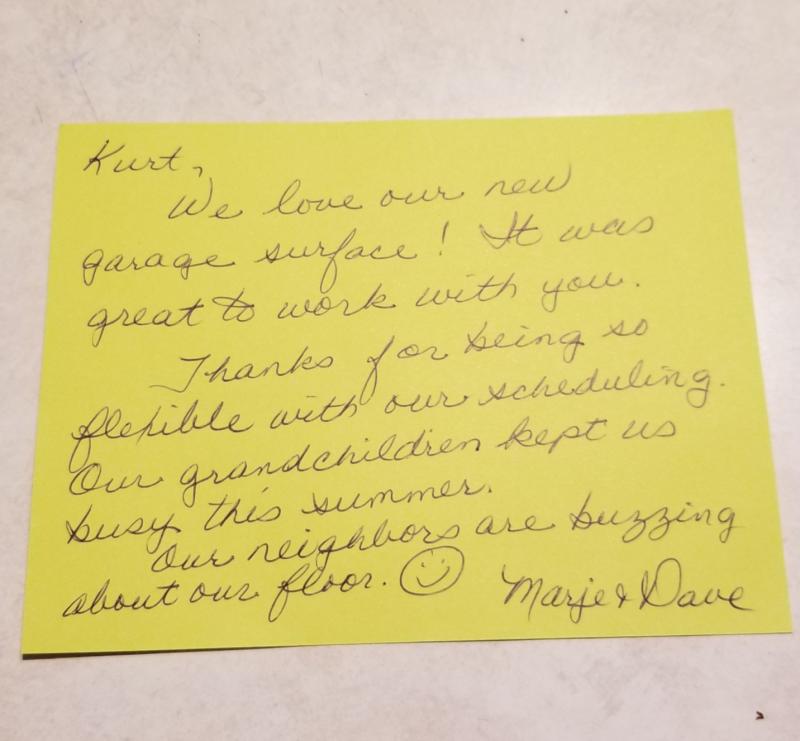 Kurt,
We love our new
garage surface! It was
great to work with you.
Thanks for being so
flexible with our scheduling.
Our grandchildren kept us
busy this summer.
Our neighbors are buzzing
about our floor. ☺ Marje & Dave